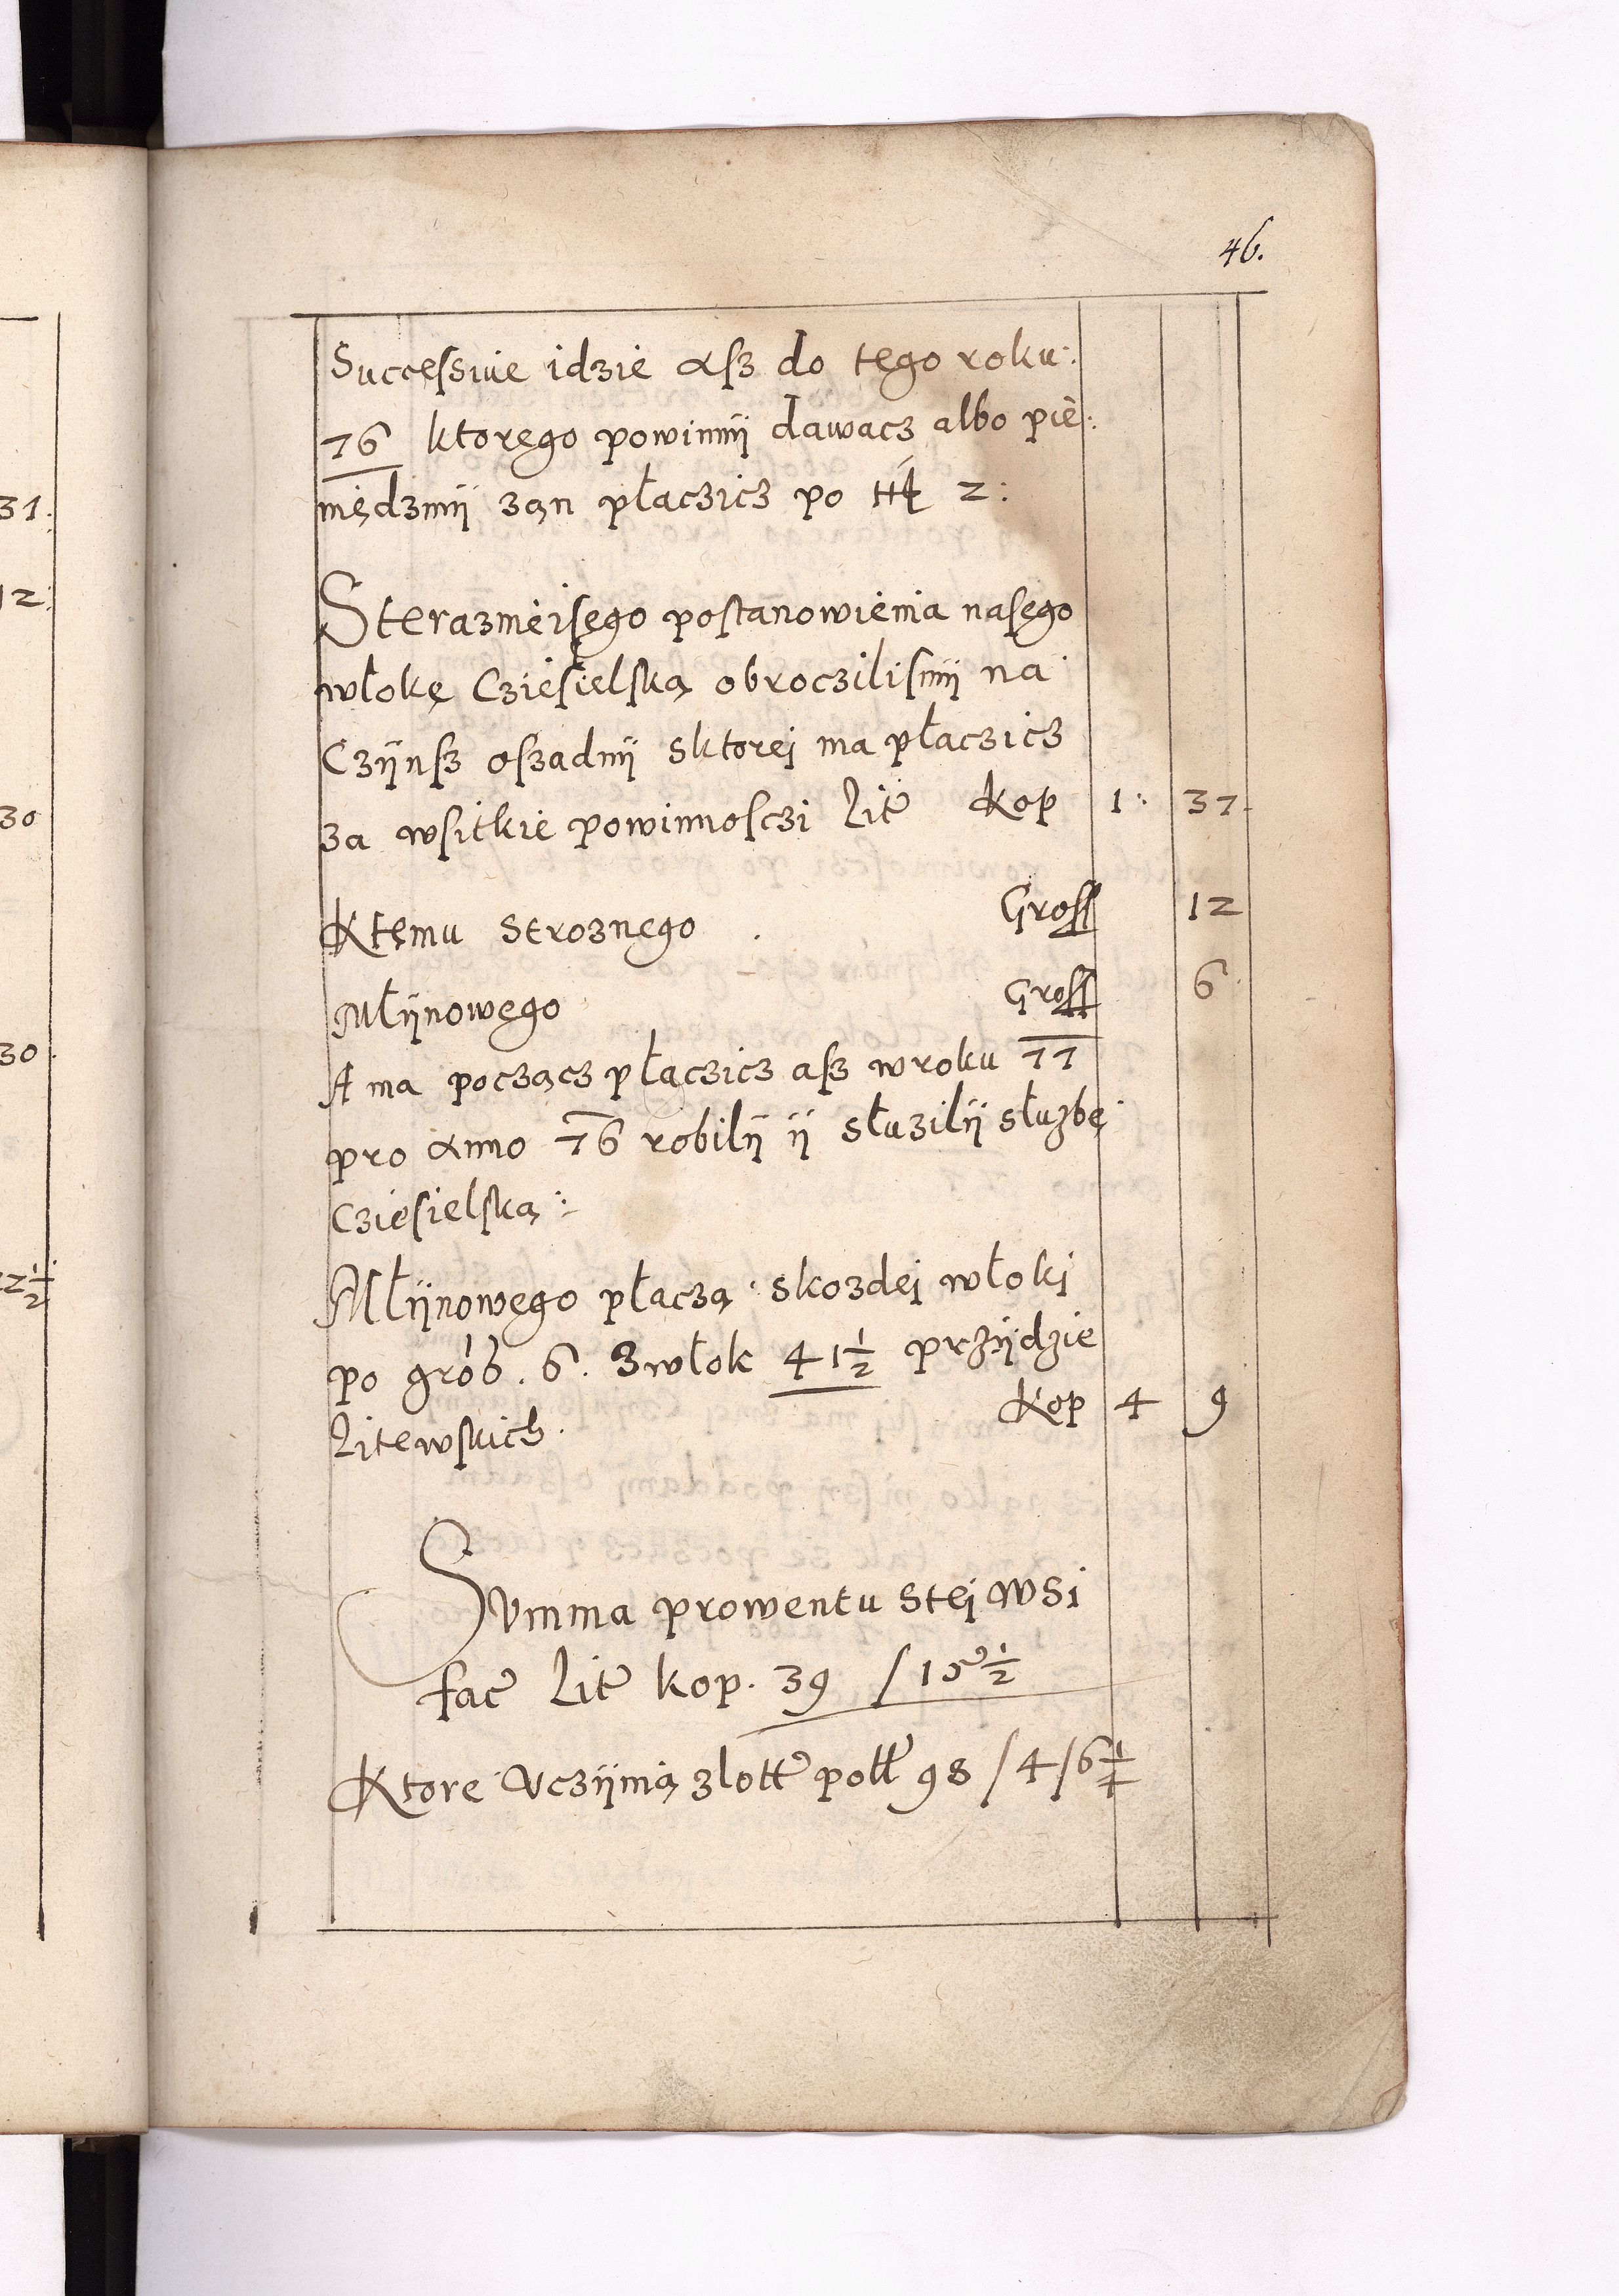 46.
Successiue idzie asz do tego roku:
76 ktorego powinnÿ dawacz albo pie:
niędzmÿ ząn płaczicz po 2:
Sterazneisego postanowienia nasego
włokę Cziesielską obroczilismÿ na
Czÿnsz oszadnÿ sktorej ma płaczicz
za wsitkie powinnosczi Lit Kop 1: 37.
Ktemu Stroznego Gross 12
Młÿnowego Gross 6
A ma począcz płaczicz asz wroku 77
pro anno 76 robilÿ ÿ służilÿ służbę
Cziesielską:
Młÿnowego płaczą skozdej włoki
po gros. 6. Zwłok 41½ przÿdzie
Litewskich. Kop 4 9
Summa prowentu stej wsi
fac Lit kop. 39 / 15½
Ktore vczÿnią złott poll 98 / 4 / 6¼
31:
12:
30
30.
22½